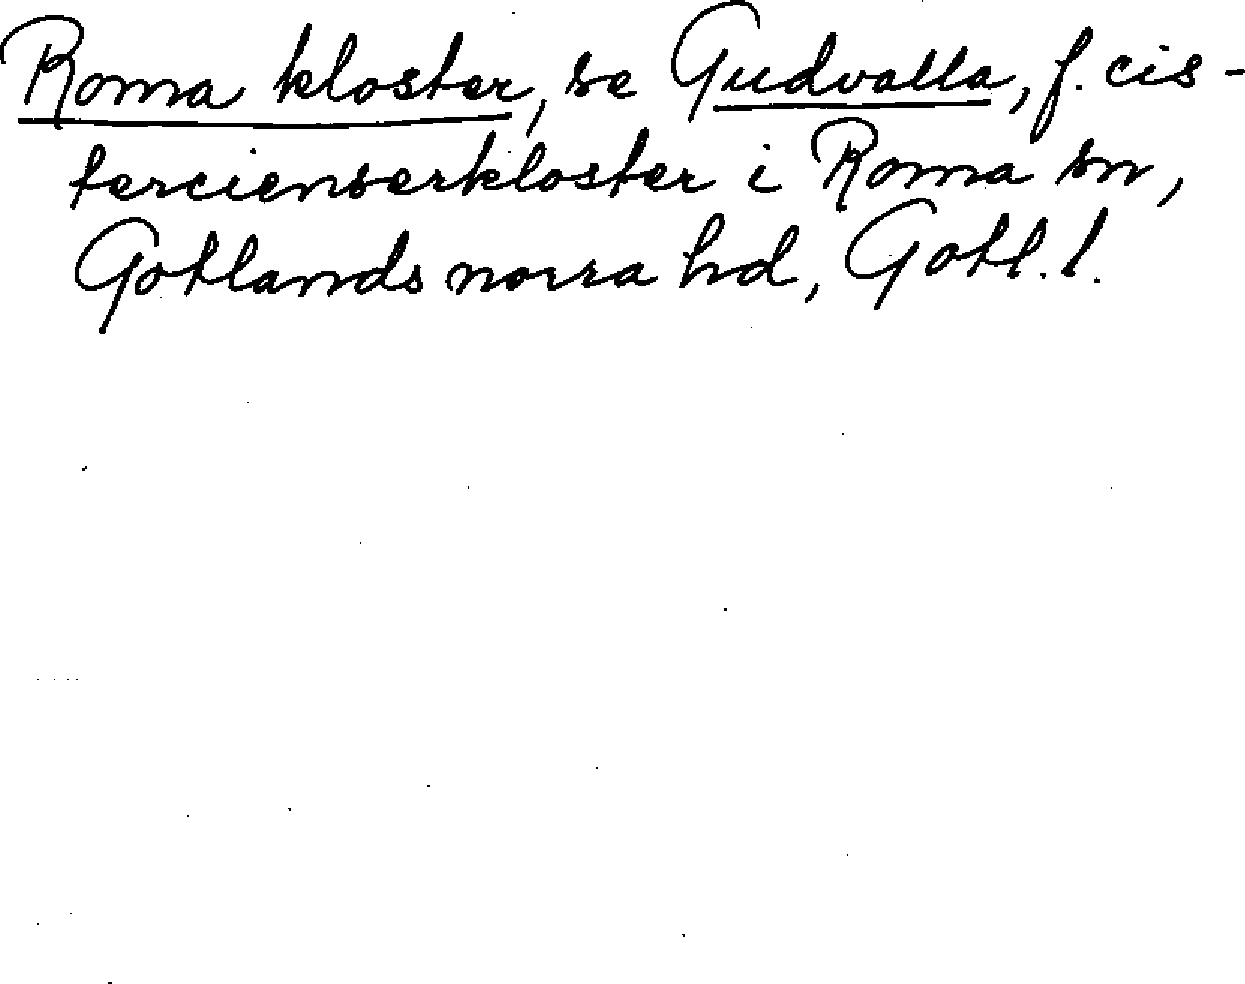 Roma kloster, se Gudvalla, f. cis-
tercienserkloster i Roma sn,
Gotlands norra hd, Gotl. l.